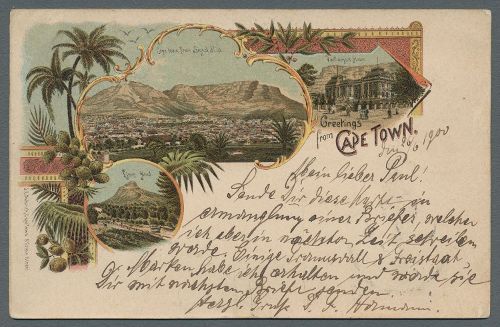 Cape Town from Signal Hill
Parliament House
Greetings
from CAPE TOWN.
1900
Mein lieber Paul!
Sende Dir diese Karte in
ermanglung eines Briefes, welchen
ich aber in nächster Zeit schreiben
werde. Einige Transvaal & Freistaat
Marken habe ich erhalten und werde sie
Dir mit nächstem Brief senden.
Herzl. Gruss